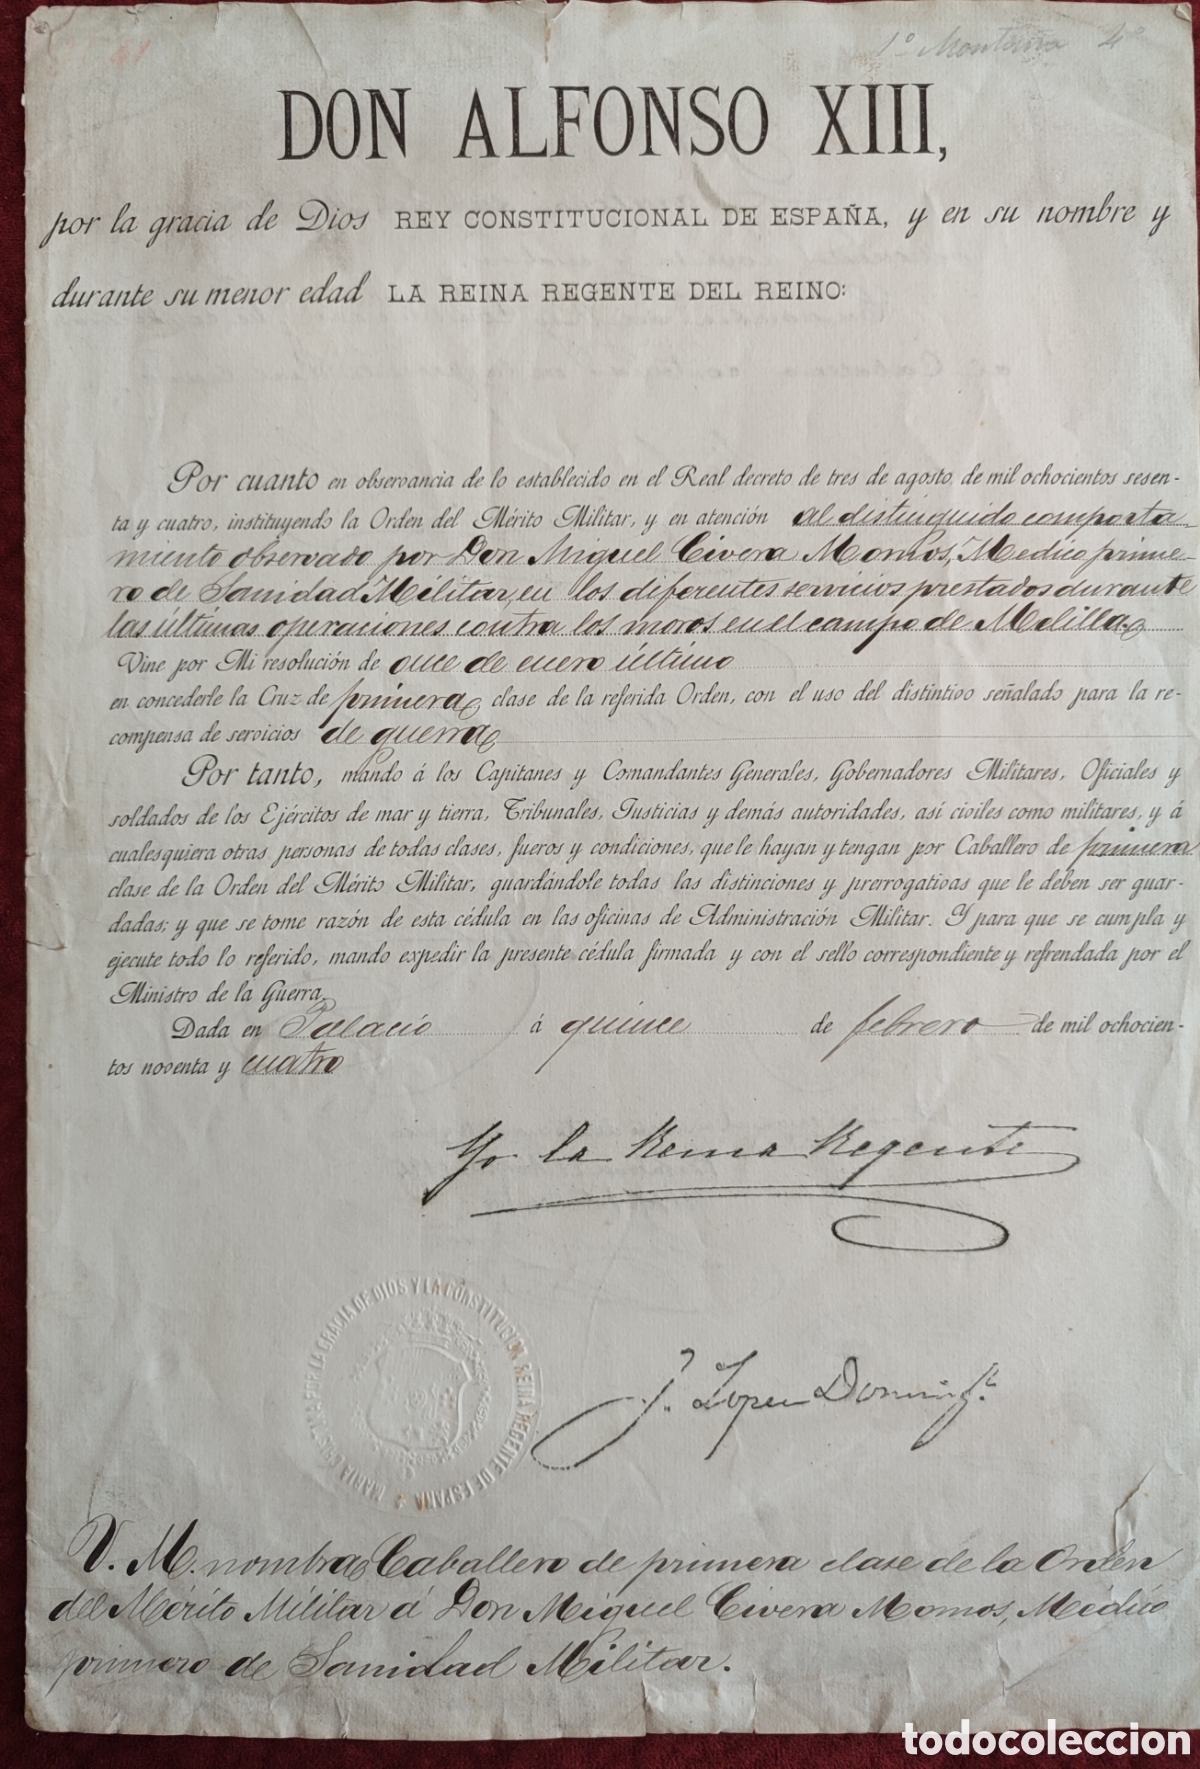 1º Montaña 4º
DON ALFONSO XIII,
por la gracia de Dios REY CONSTITUCIONAL DE ESPAÑA, y en su nombre y
durante su menor edad LA REINA REGENTE DEL REINO:
Por cuanto en observancia de lo establecido en el Real decreto de tres de agosto de mil ochocientos sesen-
ta y cuatro, instituyendo la Orden del Mérito Militar, y en atención al distinguido comporta-
miento observado por Don Miguel Civera Momos, Medico prime-
ro de Sanidad Militar, en los diferentes servicios prestados durante
las últimas operaciones contra los moros en el campo de Melilla
Vine por Mi resolución de once de enero último
en concederle la Cruz de primera clase de la referida Orden, con el uso del distintivo señalado para la re-
compensa de servicios de guerra
Por tanto, mando á los Capitanes y Comandantes Generales, Gobernadores Militares, Oficiales y
soldados de los Ejércitos de mar y tierra, Tribunales, Justicias y demás autoridades, así civiles como militares, y á
cualesquiera otras personas de todas clases, fueros y condiciones, que le hayan y tengan por Caballero de primera
clase de la Orden del Mérito Militar, guardándole todas las distinciones y prerrogativas que le deben ser guar-
dadas; y que se tome razón de esta cédula en las oficinas de Administración Militar. Y para que se cumpla y
ejecute todo lo referido, mando expedir la presente cédula firmada y con el sello correspondiente y refrendada por el
Ministro de la Guerra.
Dada en Palacio á quince de febrero de mil ochocien-
tos noventa y cuatro
Yo la Reina Regente
MARIA CRISTINA POR LA GRACIA DE DIOS Y LA CONSTITUCION REINA REGENTE DE ESPAÑA
J. Lopez Doming.
V. M. nombra Caballero de primera clase de la Orden
del Mérito Militar á Don Miguel Civera Momos, Médico
primero de Sanidad Militar.
todocoleccion